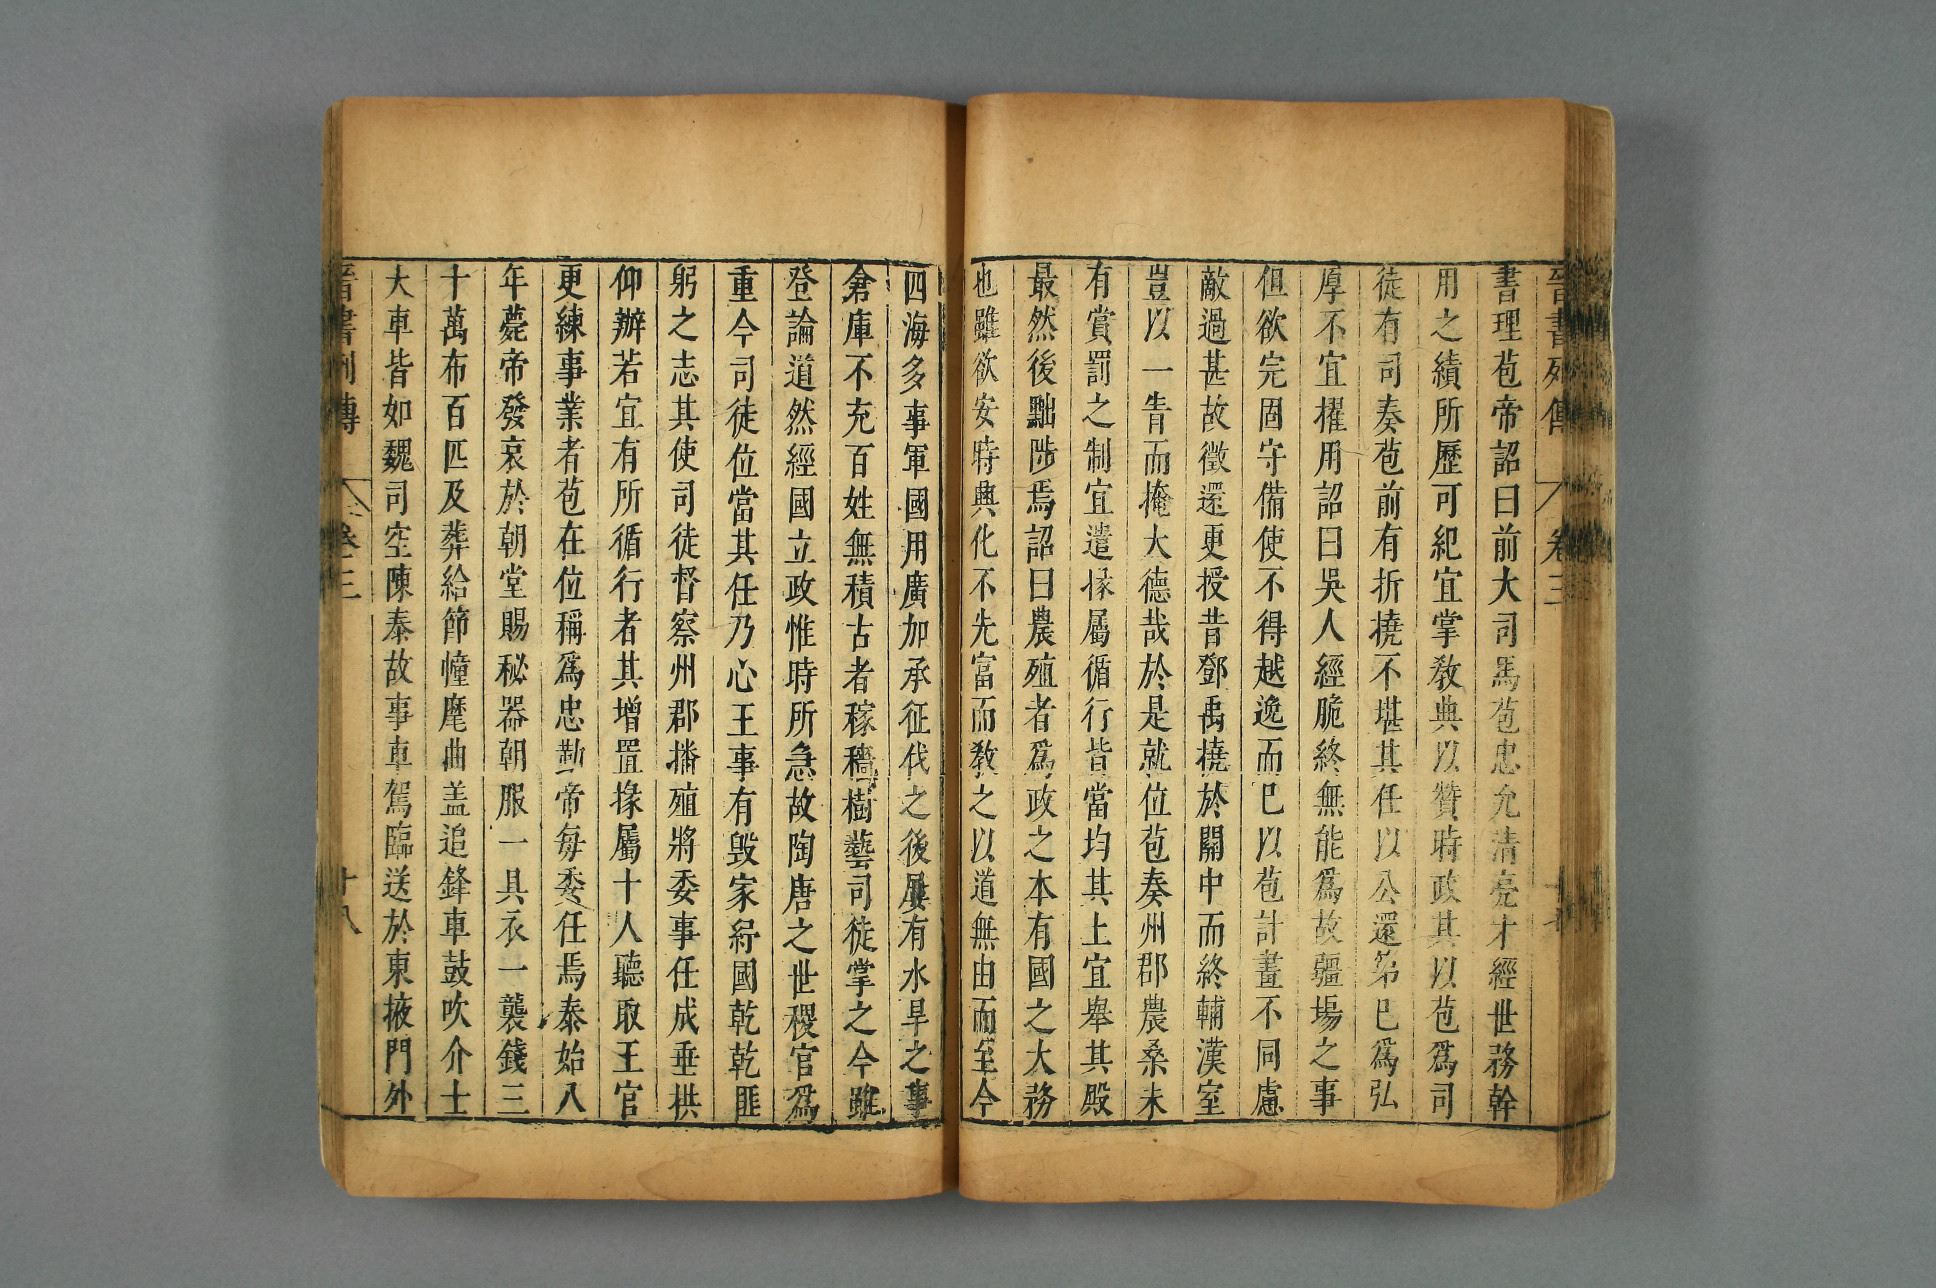 晉書列傳 卷三 十七
書理苞帝詔曰前大司馬苞忠允清亮才經世務幹
用之績所歷可紀宜掌敎典以贊時政其以苞爲司
徒有司奏苞前有折撓不堪其任以公還第巳爲弘
厚不宜擢用詔曰吳人經脆終無能爲故疆場之事
但欲完固守備使不得越逸而巳以苞計畫不同慮
敵過甚故徵還更授昔鄧禹撓於關中而終輔漢室
豈以一眚而掩大德哉於是就位苞奏州郡農桑未
有賞罰之制宜遣掾屬循行皆當均其土宜舉其殿
最然後黜陟焉詔曰農殖者爲政之本有國之大務
也雖欲安時興化不先富而敎之以道無由而至今
四海多事軍國用廣加承征伐之後屢有水旱之事
倉庫不充百姓無積古者稼穡樹藝司徒掌之今雖
登論道然經國立政惟時所急故陶唐之世稷官爲
重今司徒位當其任乃心王事有毁家紓國乾乾匪
躬之志其使司徒督察州郡播殖將委事任成垂拱
仰辦若宜有所循行者其增置掾屬十人聽取王官
更練事業者苞在位稱爲忠勤帝每委任焉泰始八
年薨帝發哀於朝堂賜秘器朝服一具衣一襲錢三
十萬布百匹及葬給節幢麾曲盖追鋒車鼓吹介士
大車皆如魏司空陳泰故事車駕臨送於東掖門外
晉書列傳 卷三 十八